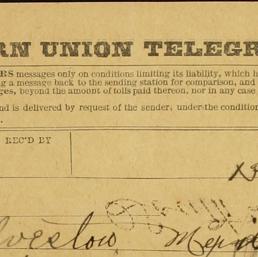 RN UNION TELEGR
RS messages only on conditions limiting its liability, which h
ng a message back to the sending station for comparison, and
ges, beyond the amount of tolls paid thereon, nor in any case
nd is delivered by request of the sender, under the condition
REC'D BY